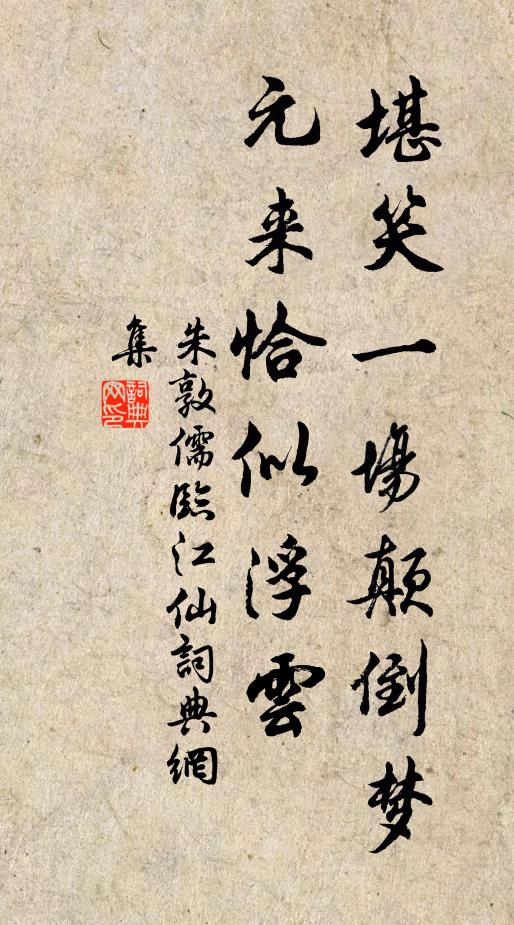 堪笑一場顛倒梦
元来恰似浮雲
朱敦儒臨江仙詞典網
集
詞典网印